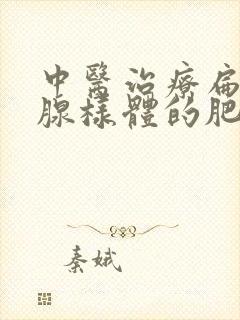 中醫治療扁
腺樣體的肥
秦娥